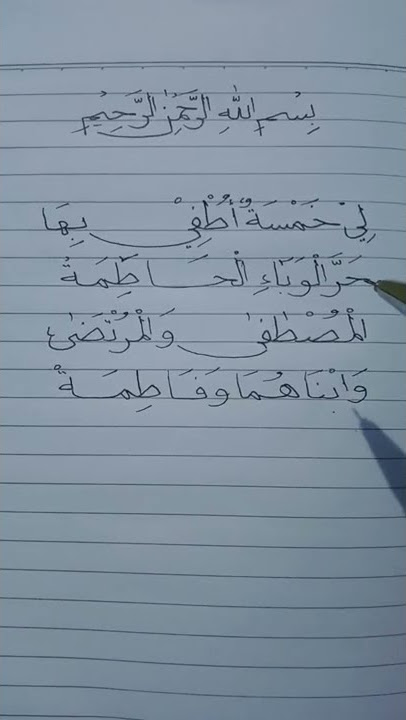 بِسْمِ اللّٰهِ الرَّحْمٰنِ الرَّحِيْمِ
لِيْ خَمْسَةٌ أُطْفِيْ بِهَا
حَرَّ الْوَبَاءِ الْحَاطِمَةُ
الْمُصْطَفٰى وَالْمُرْتَضٰى
وَابْنَاهُمَا وَفَاطِمَةْ